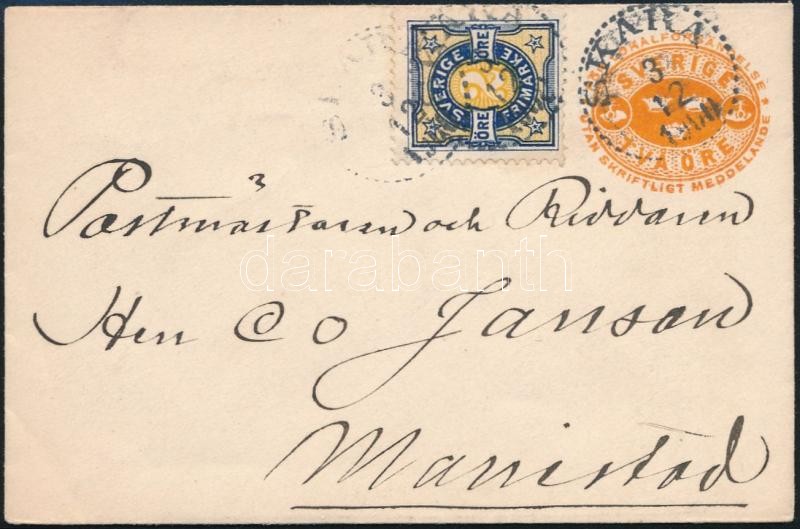 SVERIGE
2
ÖRE
ÖRE
FRIMÄRKE
SKARA
3
12
LOKALFÖRSÄNDELSE
UTAN SKRIFTLIGT MEDDELANDE
SVERIGE
TVÅ ÖRE
Postmästaren och Riddaren
darabanth
Herr C O Janson
Mariestad